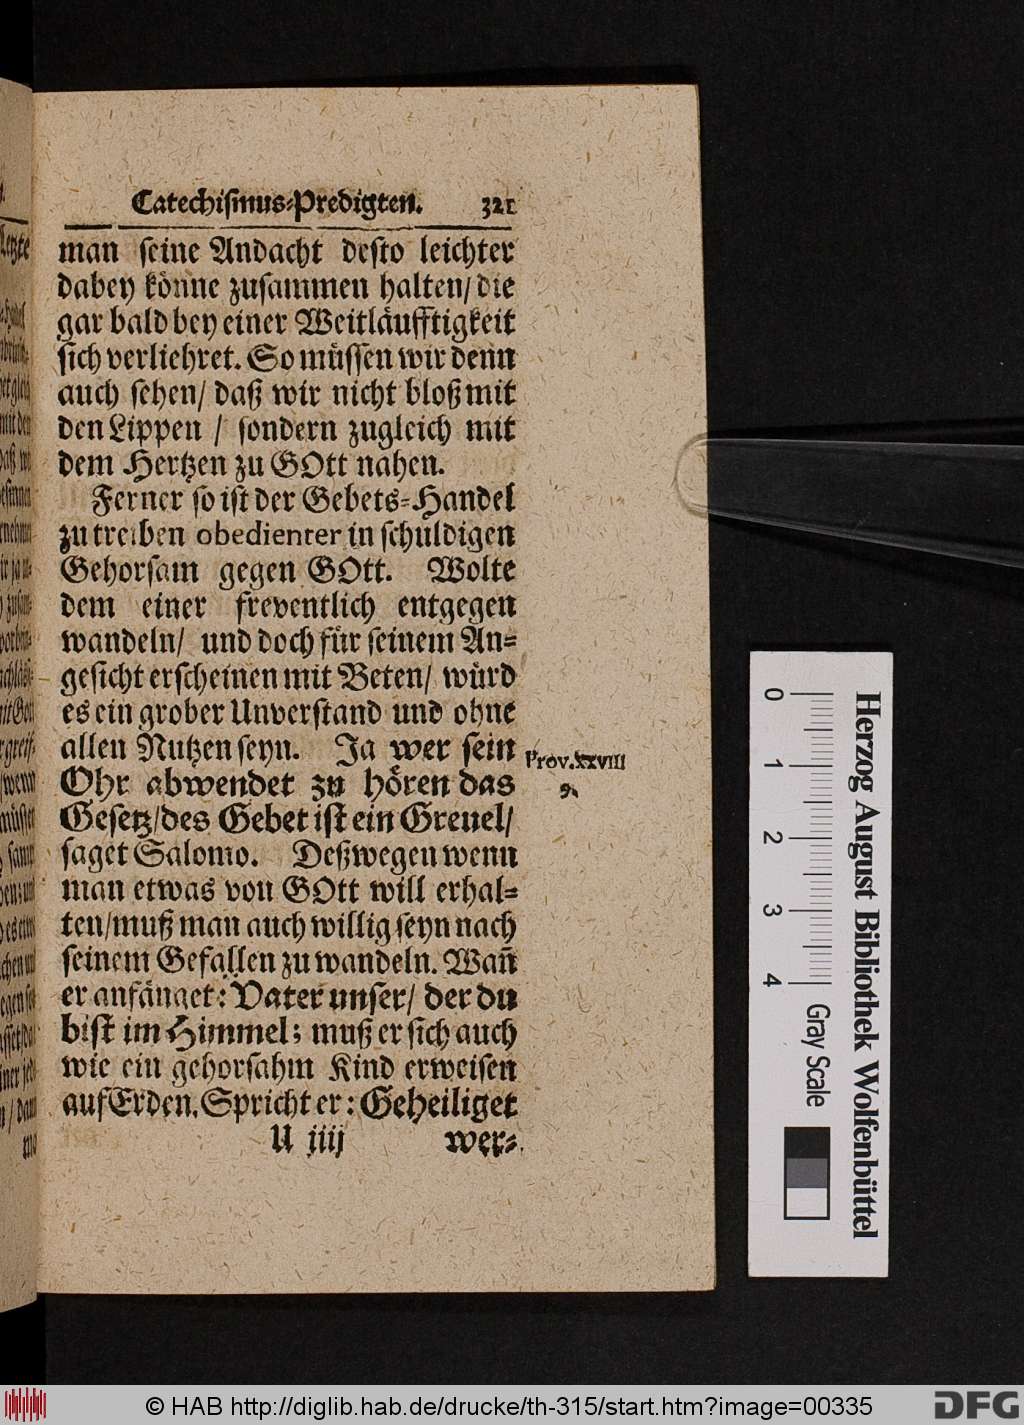 Catechismus-Predigten. 321
man seine Andacht desto leichter
dabey könne zusammen halten/ die
gar bald bey einer Weitläufftigkeit
sich verliehret. So müssen wir denn
auch sehen/ daß wir nicht bloß mit
den Lippen / sondern zugleich mit
dem Hertzen zu GOtt nahen.
Ferner so ist der Gebets-Handel
zu treiben obedienter in schuldigen
Gehorsam gegen GOtt. Wolte
dem einer freventlich entgegen
wandeln/ und doch für seinem An-
gesicht erscheinen mit Beten/ würd
es ein grober Unverstand und ohne
allen Nutzen seyn. Ja wer sein
Prov. xxviii
9.
Ohr abwendet zu hören das
Gesetz/des Gebet ist ein Greuel/
saget Salomo. Deßwegen wenn
man etwas von GOtt will erhal-
ten/muß man auch willig seyn nach
seinem Gefallen zu wandeln. Wañ
er anfänget: Vater unser/ der du
bist im Himmel; muß er sich auch
wie ein gehorsahm Kind erweisen
auf Erden. Spricht er: Geheiliget
U iiij wer-
Herzog August Bibliothek Wolfenbüttel
0 1 2 3 4 Gray Scale
© HAB http://diglib.hab.de/drucke/th-315/start.htm?image=00335
DFG